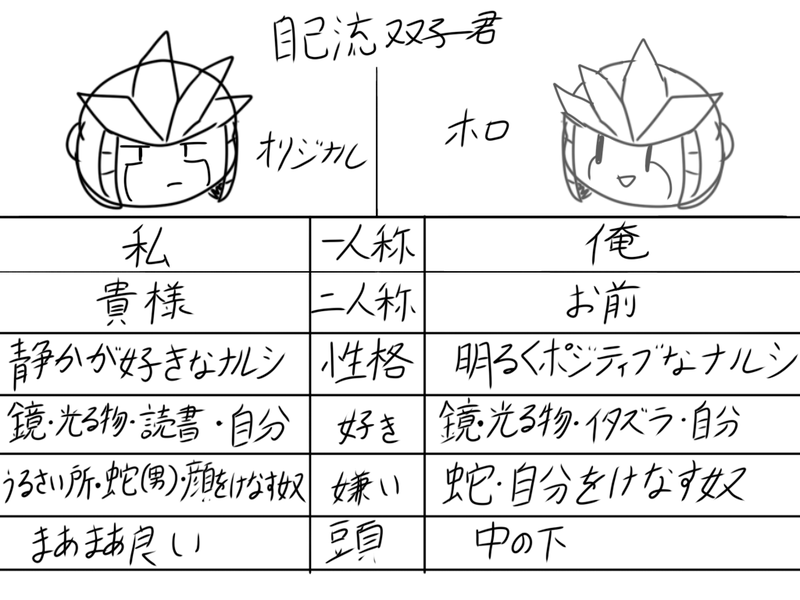 自己流双子君
オリジナル
ホロ
私 一人称 俺
貴様 二人称 お前
静かが好きなナルシ 性格 明るくポジティブなナルシ
鏡・光る物・読書・自分 好き 鏡・光る物・イタズラ・自分
うるさい所・蛇(男)・顔をけなす奴 嫌い 蛇・自分をけなす奴
まあまあ良い 頭 中の下